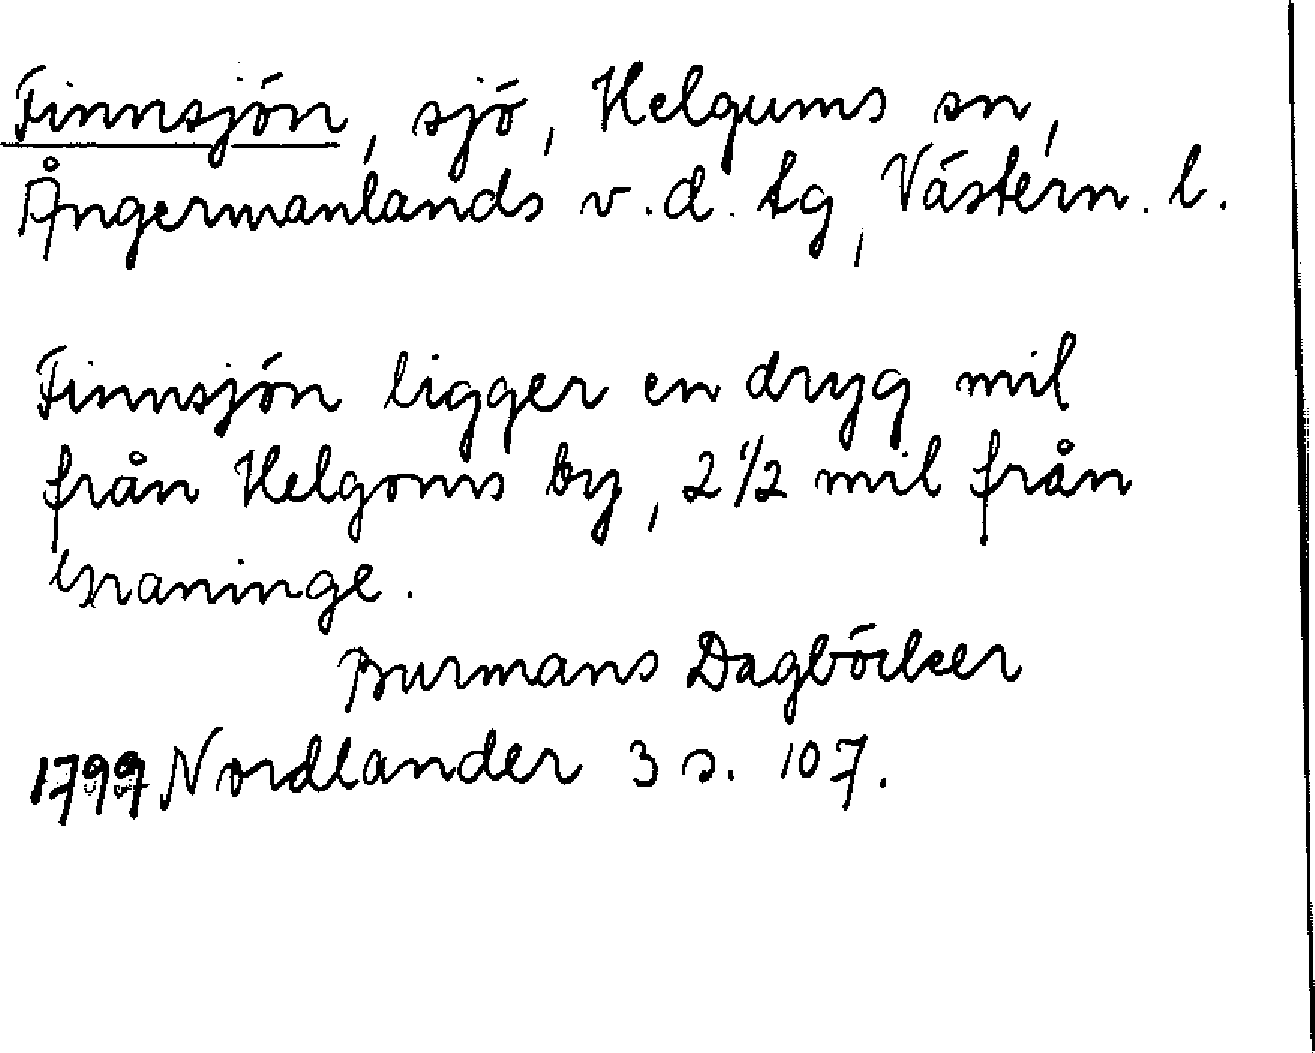 Finnsjön, sjö, Helgums sn,
Ångermanlands v.d. tg, Västern. l.
Finnsjön ligger en dryg mil
från Helgoms by, 2 1/2 mil från
Graninge.
Burmans Dagböcker
1799 Nordlander 3 s. 107.